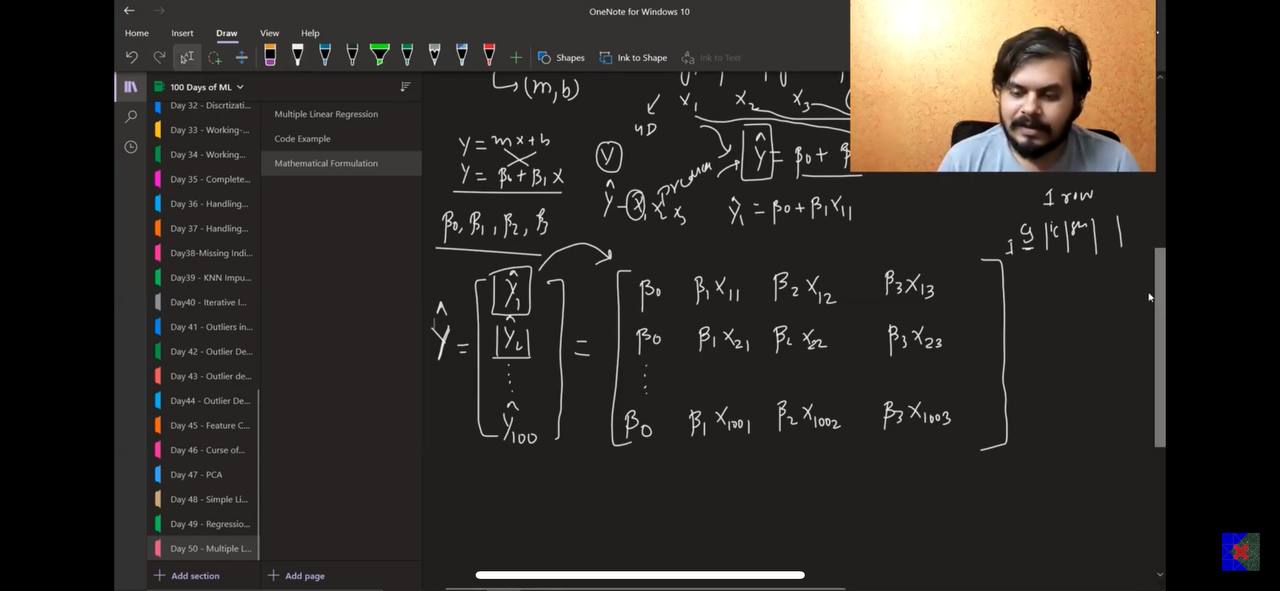 OneNote for Windows 10
Home Insert Draw View Help
Shapes Ink to Shape Ink to Text
100 Days of ML
Day 32 - Discrtizati...
Day 33 - Working-...
Day 34 - Working...
Day 35 - Complete...
Day 36 - Handling...
Day 37 - Handling...
Day38-Missing Indi...
Day39 - KNN Impu...
Day40 - Iterative I...
Day 41 - Outliers in...
Day 42 - Outlier De...
Day 43 - Outlier de...
Day44 - Outlier De...
Day 45 - Feature C...
Day 46 - Curse of...
Day 47 - PCA
Day 48 - Simple Li...
Day 49 - Regressio...
Day 50 - Multiple L...
Add section
Multiple Linear Regression
Code Example
Mathematical Formulation
Add page
(m, b)
x₁ x₂ x₃
4D
Y = mx + b
Y = β₀ + β₁x
Y
Ŷ = β₀ +
Ŷ - x₁ x₂ x₃
Ŷ₁ = β₀ + β₁x₁₁
β₀, β₁, β₂, β₃
1 row
Ŷ = Ŷ₁ = β₀ β₁x₁₁ β₂x₁₂ β₃x₁₃
Ŷ₂ β₀ β₁x₂₁ β₂x₂₂ β₃x₂₃
Ŷ₁₀₀ β₀ β₁x₁₀₀₁ β₂x₁₀₀₂ β₃x₁₀₀₃